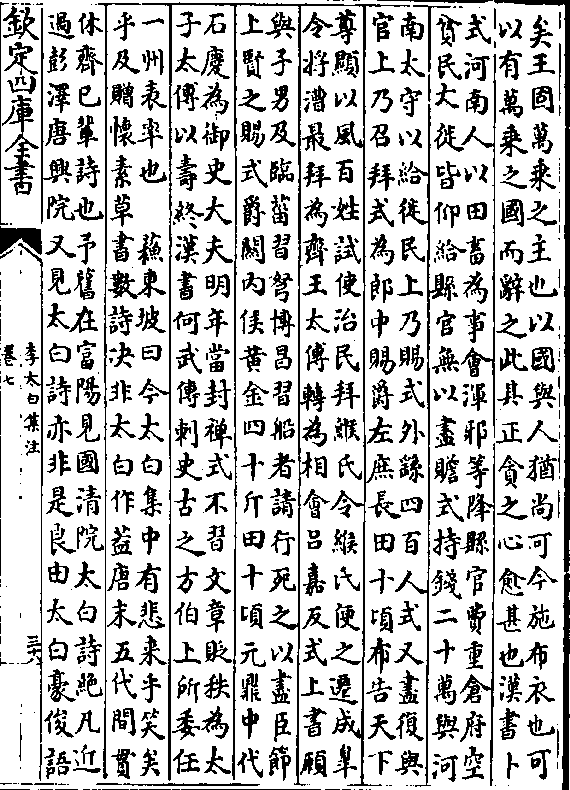 矣王固萬乘之主也以國與人猶尚可今施布衣也可
以有萬乘之國而辭之此其正貪之心愈甚也漢書卜
式河南人以田畜為事會渾邪等降縣官費重倉府空
貧民大徙皆仰給縣官無以盡贍式持錢二十萬與河
南太守以給徙民上乃賜式外繇四百人式又盡復與
官上乃召拜式為郎中賜爵左庶長田十頃布告天下
尊顯以風百姓試使治民拜緱氏令緱氏便之遷成皐
令將漕最拜為齊王太傅轉為相會吕嘉反式上書願
與子男及臨菑習弩博昌習船者請行死之以盡臣節
上賢之賜式爵關内侯黄金四十斤田十頃元鼎中代
石慶為御史大夫明年當封禪式不習文章貶秩為太
子太傅以壽終漢書何武傳刺史古之方伯上所委任
一州表率也　蘇東坡曰今太白集中有悲来乎笑矣
乎及贈懷素草書數詩决非太白作葢唐末五代間貫
休齊已輩詩也予舊在富陽見國清院太白詩絶凡近
過彭澤唐興院又見太白詩亦非是良由太白豪俊語
欽定四庫全書
李太白集注
卷七